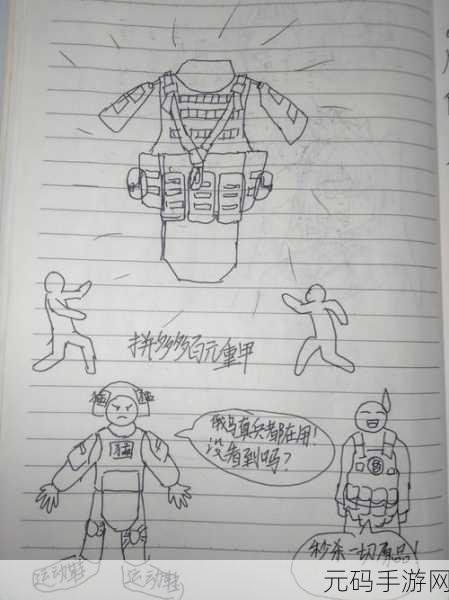 拼多多百元重甲
俄乌真兵都在用！
没看到吗？
秒杀一切原品！
运动鞋
运动鞋
元码手游网